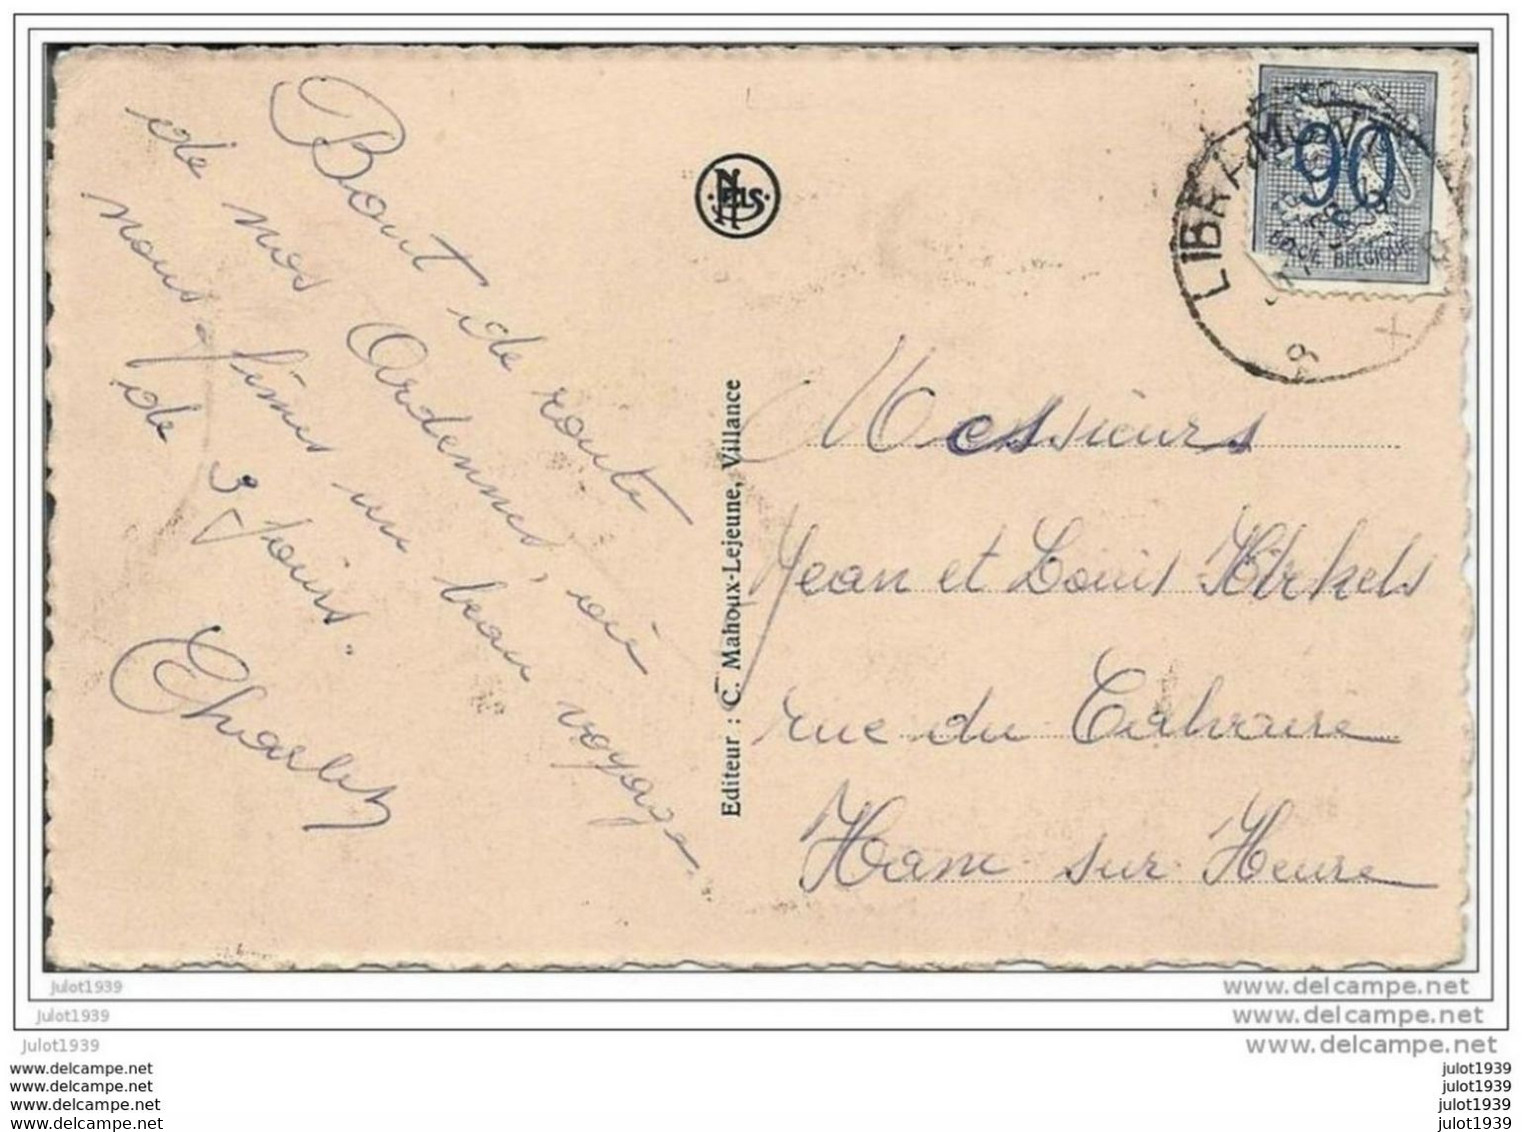 Bout de route
de nos Ardennes, où
nous fîmes un beau voyage
de 3 Jours.
Charles
NELS
Editeur : C. Mahoux-Lejeune, Villance
LIBRAMONT
90
BELGIQUE
Messieurs
Jean et Louis
rue du Calvaire
Ham sur Heure
julot1939
www.delcampe.net
julot1939
www.delcampe.net
julot1939
www.delcampe.net
www.delcampe.net
julot1939
www.delcampe.net
julot1939
www.delcampe.net
julot1939
www.delcampe.net
julot1939